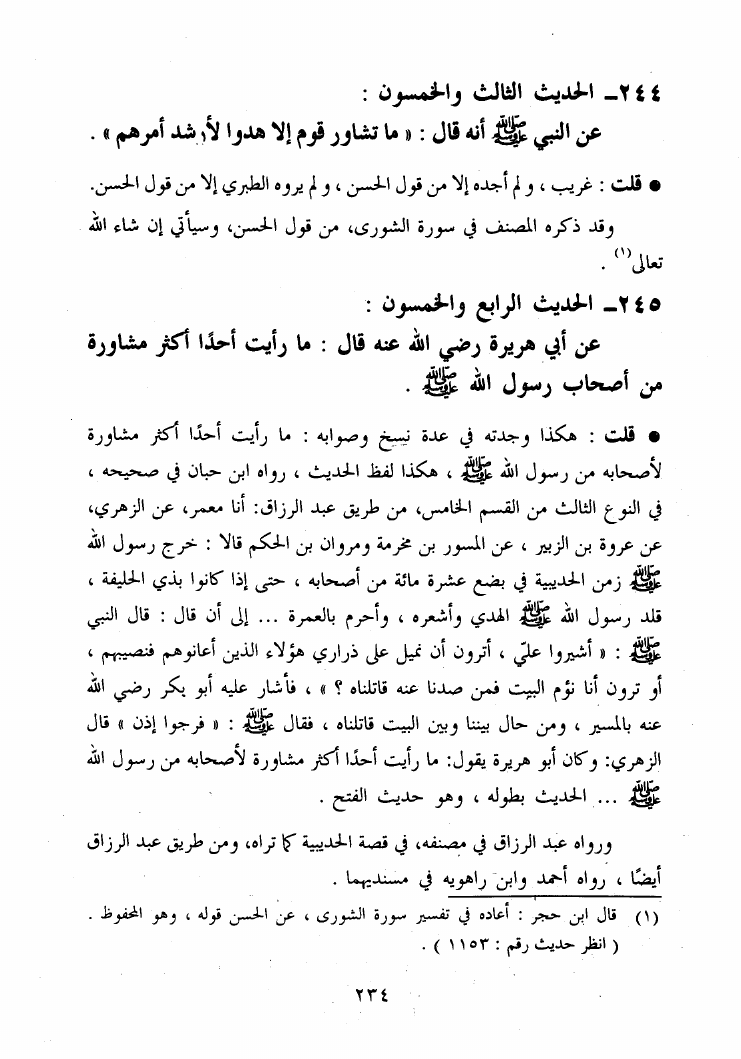 ٢٤٤ـ الحديث الثالث والخمسون :
عن النبي ﷺ أنه قال : « ما تشاور قوم إلا هدوا لأرشد أمرهم » .
● قلت : غريب ، ولم أجده إلا من قول الحسن ، ولم يروه الطبري إلا من قول الحسن.
وقد ذكره المصنف في سورة الشورى، من قول الحسن، وسيأتي إن شاء الله
تعالى(١) .
٢٤٥ـ الحديث الرابع والخمسون :
عن أبي هريرة رضي الله عنه قال : ما رأيت أحدًا أكثر مشاورة
من أصحاب رسول الله ﷺ .
● قلت : هكذا وجدته في عدة نسخ وصوابه : ما رأيت أحدًا أكثر مشاورة
لأصحابه من رسول الله ﷺ ، هكذا لفظ الحديث ، رواه ابن حبان في صحيحه ،
في النوع الثالث من القسم الخامس، من طريق عبد الرزاق: أنا معمر، عن الزهري،
عن عروة بن الزبير ، عن المسور بن مخرمة ومروان بن الحكم قالا : خرج رسول الله
ﷺ زمن الحديبية في بضع عشرة مائة من أصحابه ، حتى إذا كانوا بذي الحليفة ،
قلد رسول الله ﷺ الهدي وأشعره ، وأحرم بالعمرة ... إلى أن قال : قال النبي
ﷺ : « أشيروا عليّ ، أترون أن نميل على ذراري هؤلاء الذين أعانوهم فنصيبهم ،
أو ترون أنا نؤم البيت فمن صدنا عنه قاتلناه ؟ » ، فأشار عليه أبو بكر رضي الله
عنه بالمسير ، ومن حال بيننا وبين البيت قاتلناه ، فقال ﷺ : « فرجوا إذن » قال
الزهري: وكان أبو هريرة يقول: ما رأيت أحدًا أكثر مشاورة لأصحابه من رسول الله
ﷺ ... الحديث بطوله ، وهو حديث الفتح .
ورواه عبد الرزاق في مصنفه، في قصة الحديبية كما تراه، ومن طريق عبد الرزاق
أيضًا ، رواه أحمد وابن راهويه في مسنديهما .
(١) قال ابن حجر : أعاده في تفسير سورة الشورى ، عن الحسن قوله ، وهو المحفوظ .
( انظر حديث رقم : ١١٥٣ ) .
٢٣٤